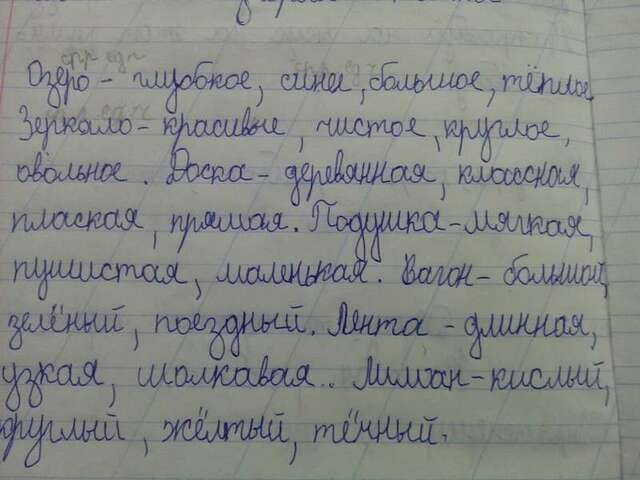 Озеро - глубокое, сине, большое, тёплое
Зеркало - красивые, чистое, круглое,
овольное. Доска - деревянная, классная,
плаская, прямая. Подушка - мягкая,
пушистая, маленькая. Вагон - большой,
зелёный, поездный. Лента - длинная,
узкая, шолкавая. Лимоан - кислый,
круглый, жёлтый, тёчный.